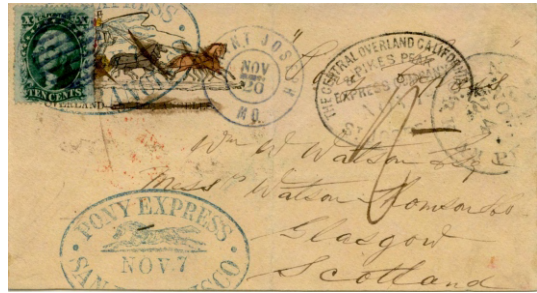 X X
TEN CENTS
EXPRESS
FRANCISCO
OVERLAND
SAINT JOSEPH
NOV
20
MO.
THE CENTRAL OVERLAND CALIFORNIA
& PIKES PEAK
EXPRESS COMPANY
ST
Wm W Watson Esq
Messrs Watson Thomson & Co
Glasgow
Scotland
PONY EXPRESS
NOV. 7
SAN FRANCISCO